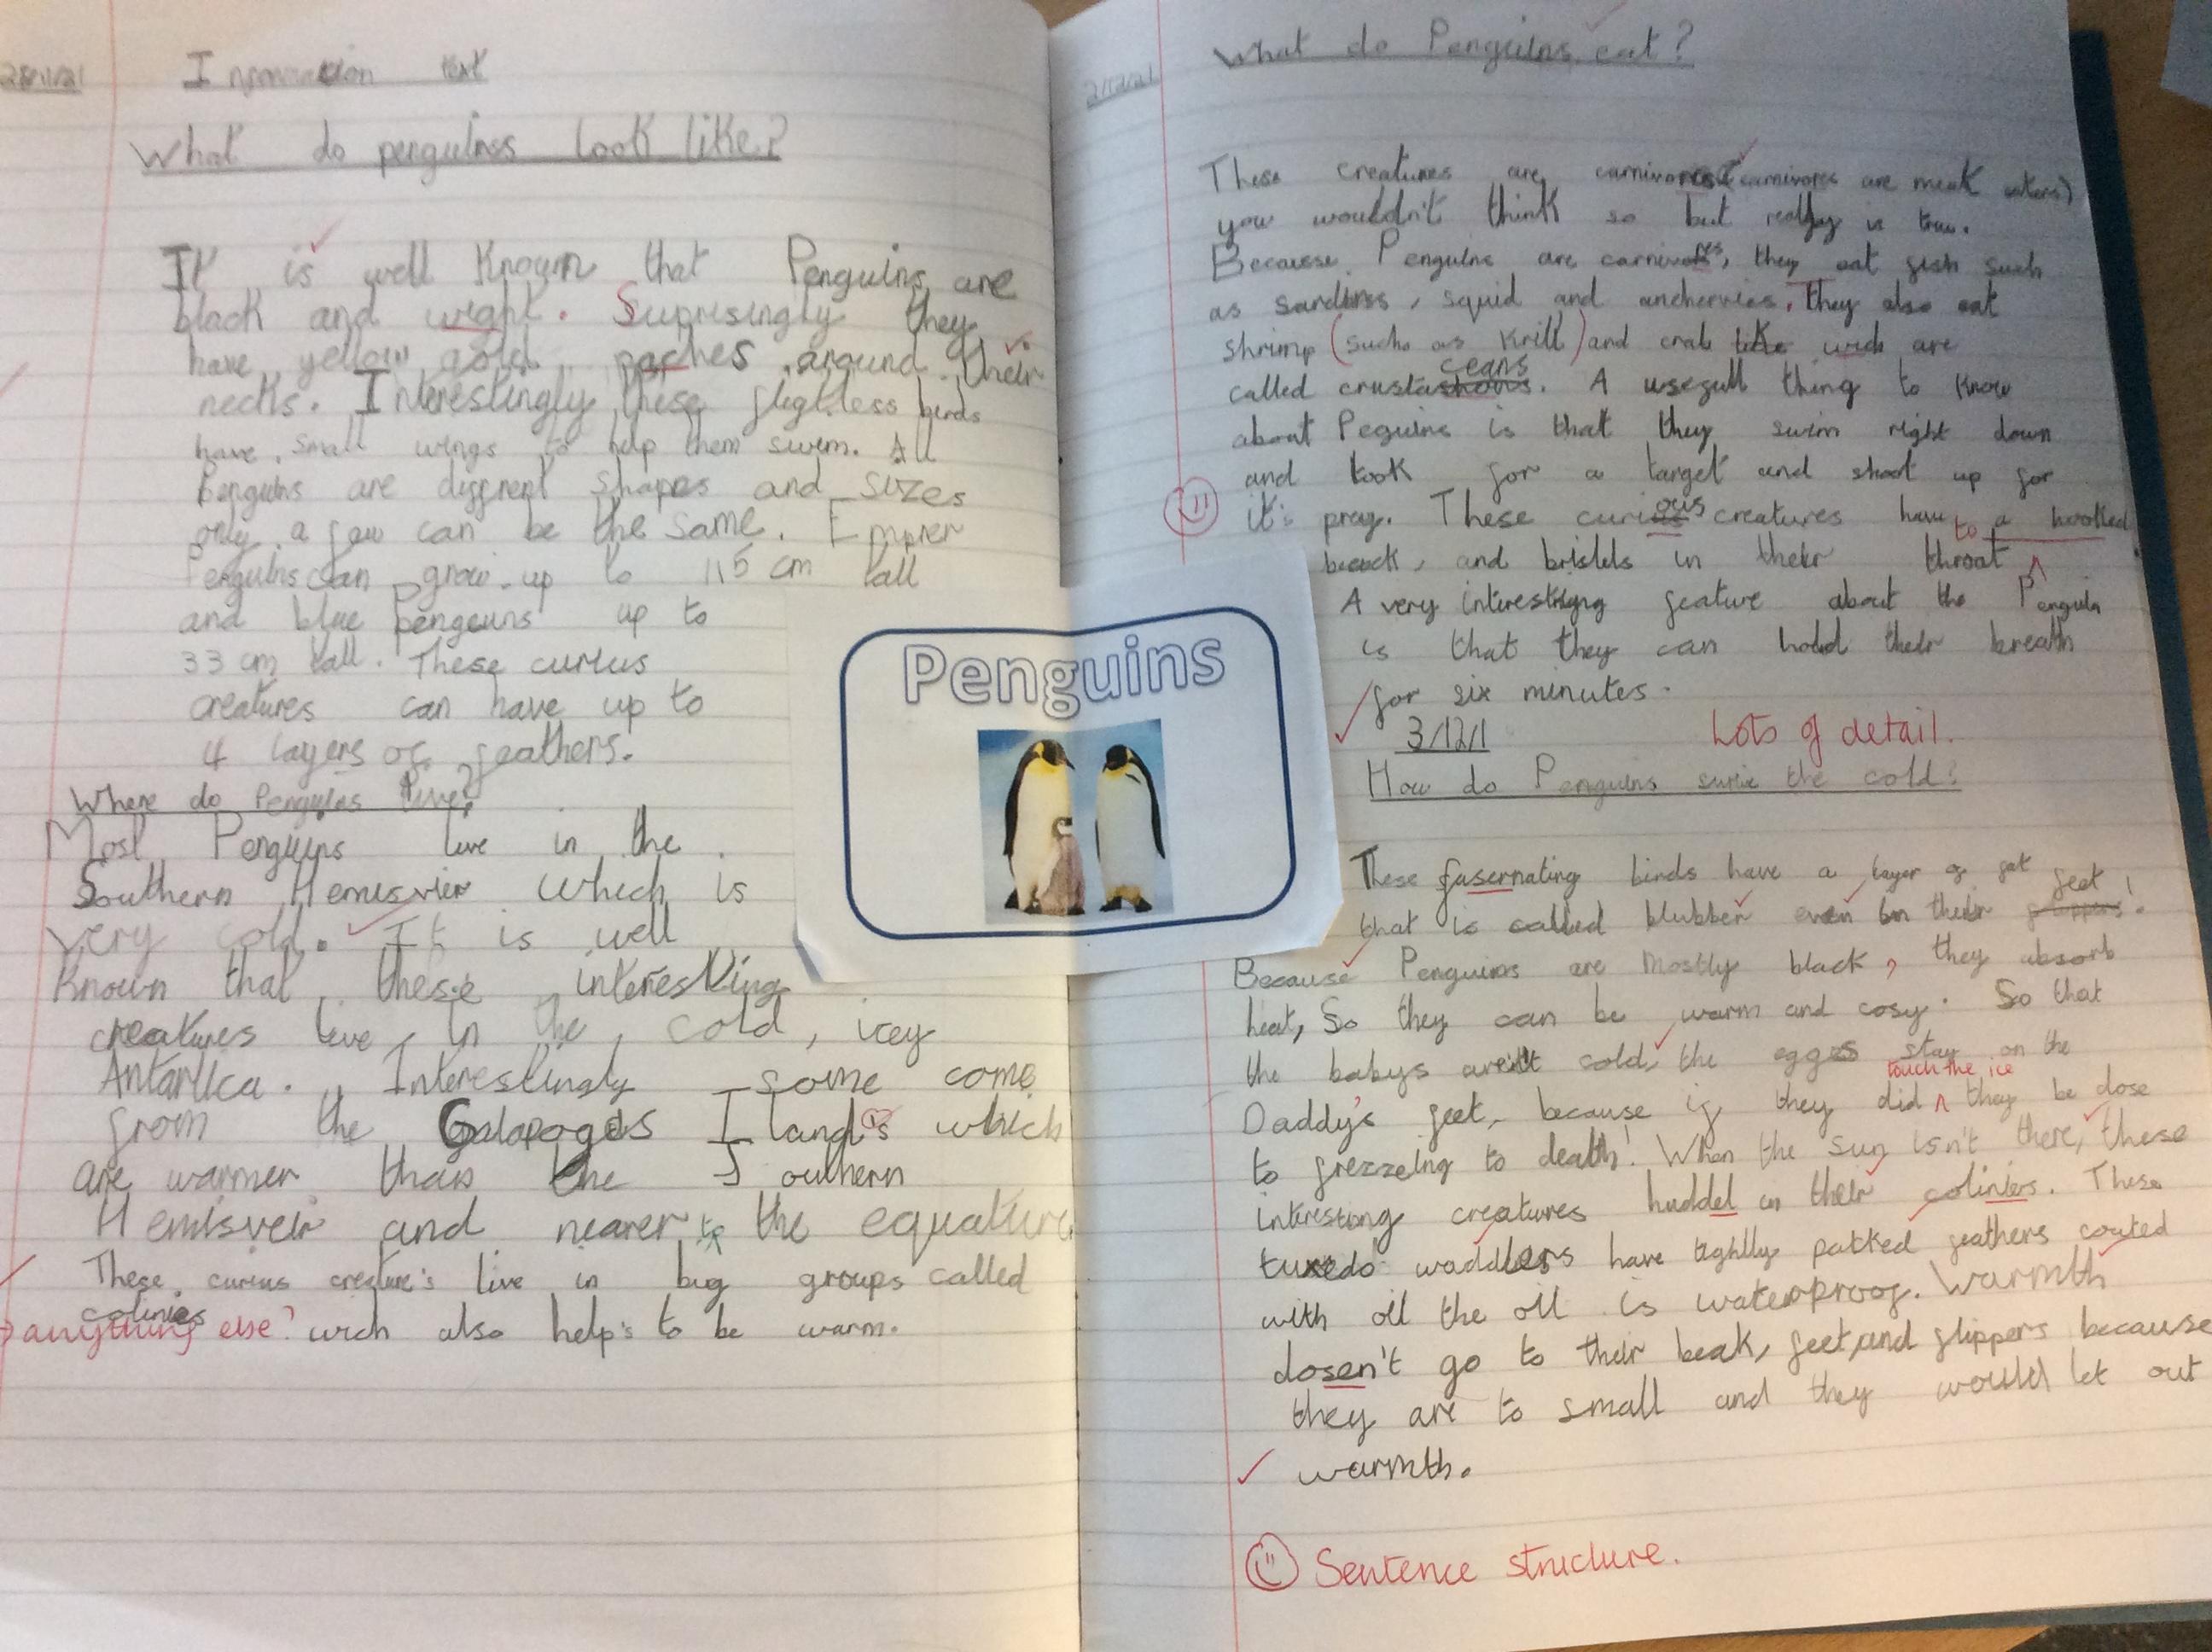 Information text
What do penguins look like?
It is well known that Penguins are
black and wight. Suprisingly they
have yellow gold paches around their
necks. Interestingly these flightless birds
have small wings to help them swim. All
Penguins are diffrent shapes and sizes
only a few can be the same. Emprer
Penguins can grow up to 115 cm tall
and blue pengeuns up to
33 cm tall. These curius
creatures can have up to
4 layers of feathers.
Where do Penguins live?
Most Penguins live in the
Southern Hemisvier which is
very cold. It is well
known that these interesting
creatures live in the cold, icey
Antartica. Interestingly some come
from the Galapagos Islands which
are warmer than the Southern
Hemisveir and nearer to the equature
These curius creature's live in big groups called
colinies
anything else? wich also help's to be warm.
Penguins
2/12/21
What do Penguins eat?
These creatures are carnivores (carnivores are meat eaters)
you wouldn't think so but really is true.
Because Penguins are carnivores, they eat fish such
as sardines, squid and anchervies. They also eat
shrimp (suchs as krill) and crab like wich are
ceans
called crustashovis. A usefull thing to know
about Peguins is that they swim right down
and look for a target and shoot up for
it's pray. These curious creatures have to a hooked
beack, and bristels in their throat
A very interesting feature about the Penguin
is that they can hold their breath
for six minutes.
3/12/1
Lots of detail.
How do Penguins surive the cold?
These fasernating birds have a layer of fat
feet!
that is called blubber even on their flippers.
Because Penguins are mostly black, they absorb
heat, So they can be warm and cosy. So that
the babys aren't cold, the eggs stay on the
touch the ice
Daddy's feet, because if they did they be close
to frezzeing to death! When the sun isn't there, these
interesting creatures huddel in their colinies. These
tuxedo waddlers have tightly patked feathers coated
with oil the oil is waterproof. Warmth
dosen't go to their beak, feet, and flippers because
they are to small and they would let out
warmth.
Sentence structure.